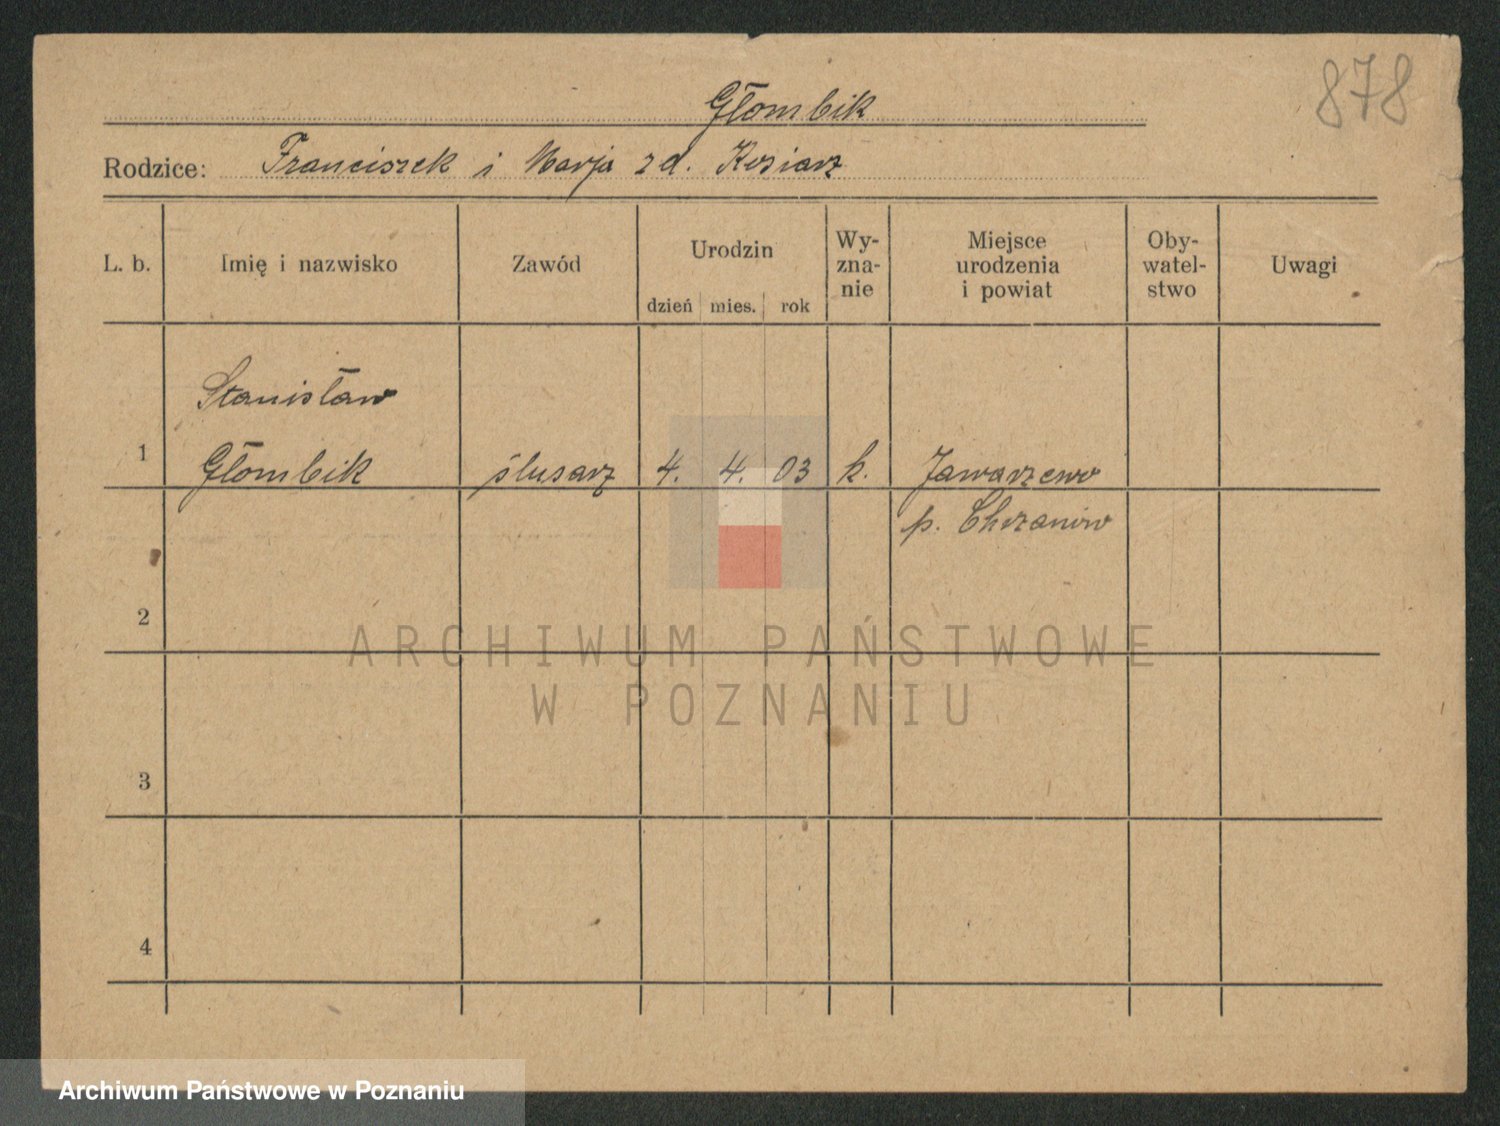 878
Głombik
Rodzice: Franciszek i Marja zd. Koziarz
L. b.
Imię i nazwisko
Zawód
Urodzin
dzień mies. rok
Wy-
zna-
nie
Miejsce
urodzenia
i powiat
Oby-
watel-
stwo
Uwagi
Stanisław
1 Głombik ślusarz 4. 4. 03 k. Jaworzewo
p. Chrzanów
2
3
4
ARCHIWUM PAŃSTWOWE
W POZNANIU
Archiwum Państwowe w Poznaniu